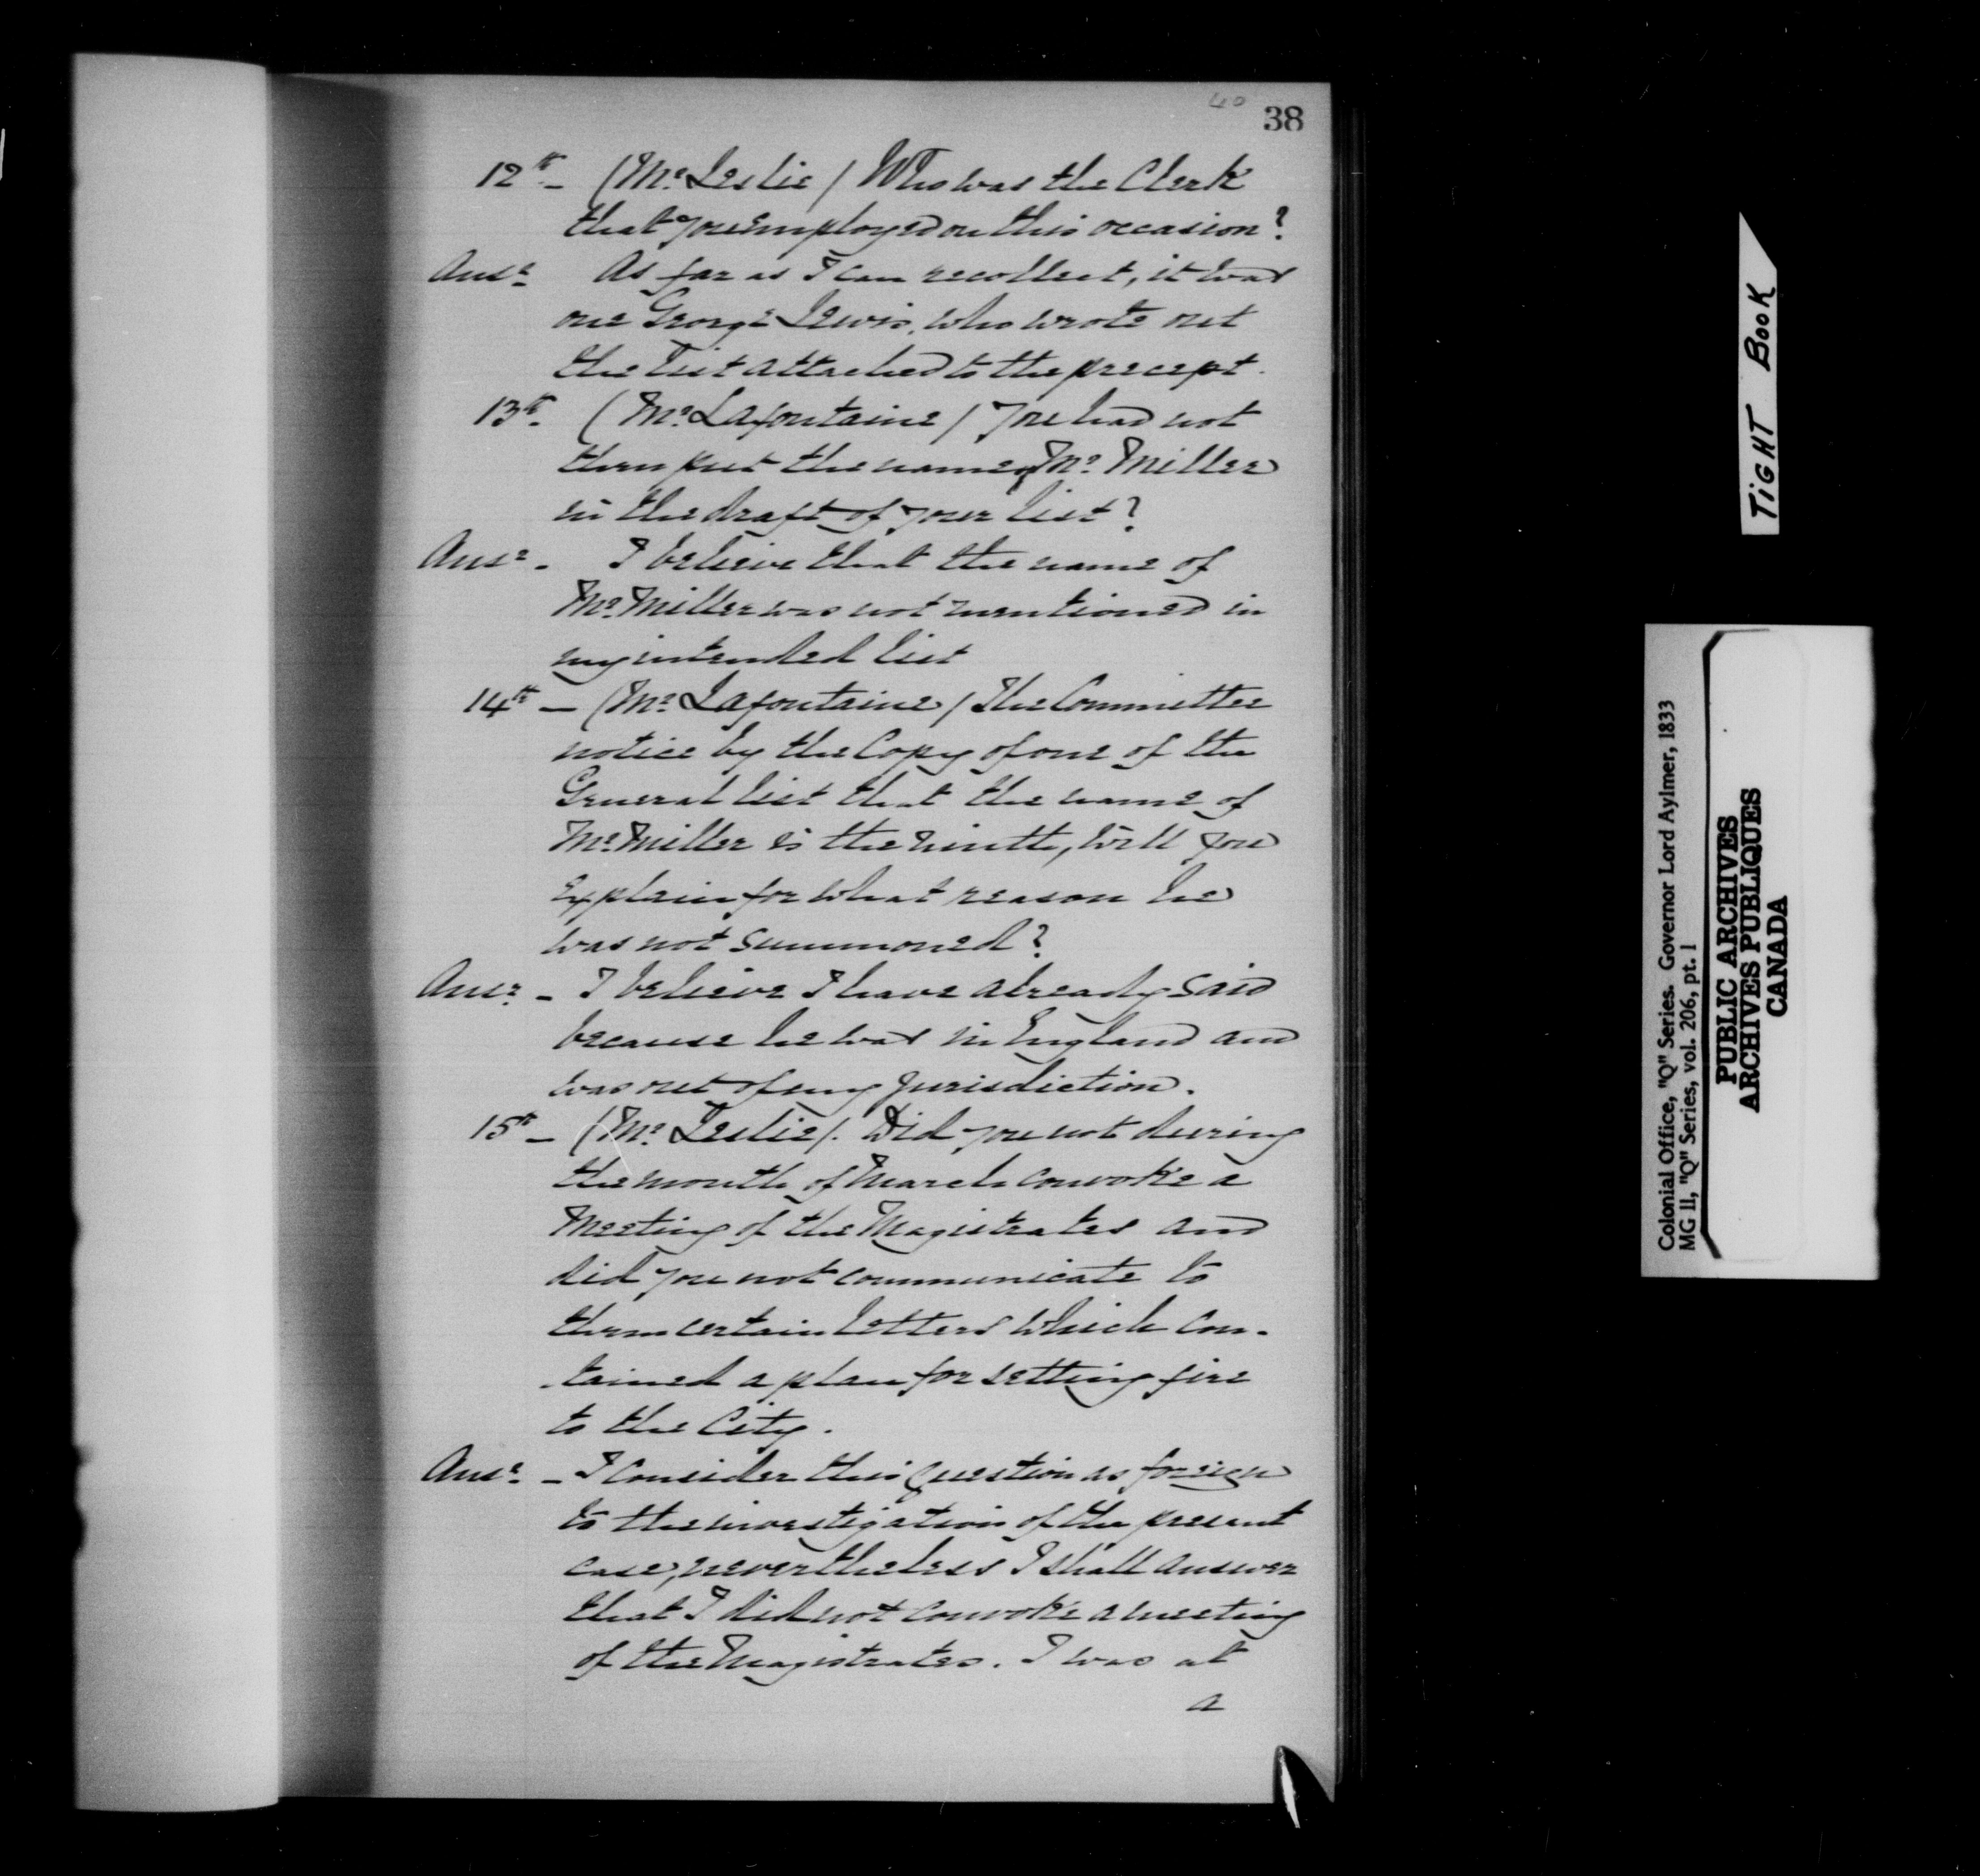 40
38
12th – (Mr. Leslie / Who was the Clerk
that you Employed on this occasion?
Ansr. As far as I can recollect, it was
one George Lewis, who wrote out
the List attached to the precept.
13th. (Mr. Lafontaine / You had not
then put the name of Mr. Miller
in the draft of your list?
Ansr. I believe that the name of
Mr. Miller was not mentioned in
my intended list
14th – (Mr. Lafontaine / The Committee
notice by the Copy of one of the
General list that the name of
Mr. Miller is the ninth, will you
Explain for what reason he
was not summoned?
Ansr. – I believe I have already said
because he was in England and
was out of my jurisdiction.
15th – (Mr. Leslie /. Did you not during
the month of March convoke a
Meeting of the Magistrates and
did you not communicate to
them certain letters which con-
-tained a plan for setting fire
to the City.
Ansr. – I consider this question as foreign
to the investigation of the present
case, nevertheless I shall answer
that I did not convoke a meeting
of the Magistrates. I was at
a
TIGHT BOOK
Colonial Office, "Q" Series. Governor Lord Aylmer, 1833
MG 11, "Q" Series, vol. 206, pt. 1
PUBLIC ARCHIVES
ARCHIVES PUBLIQUES
CANADA